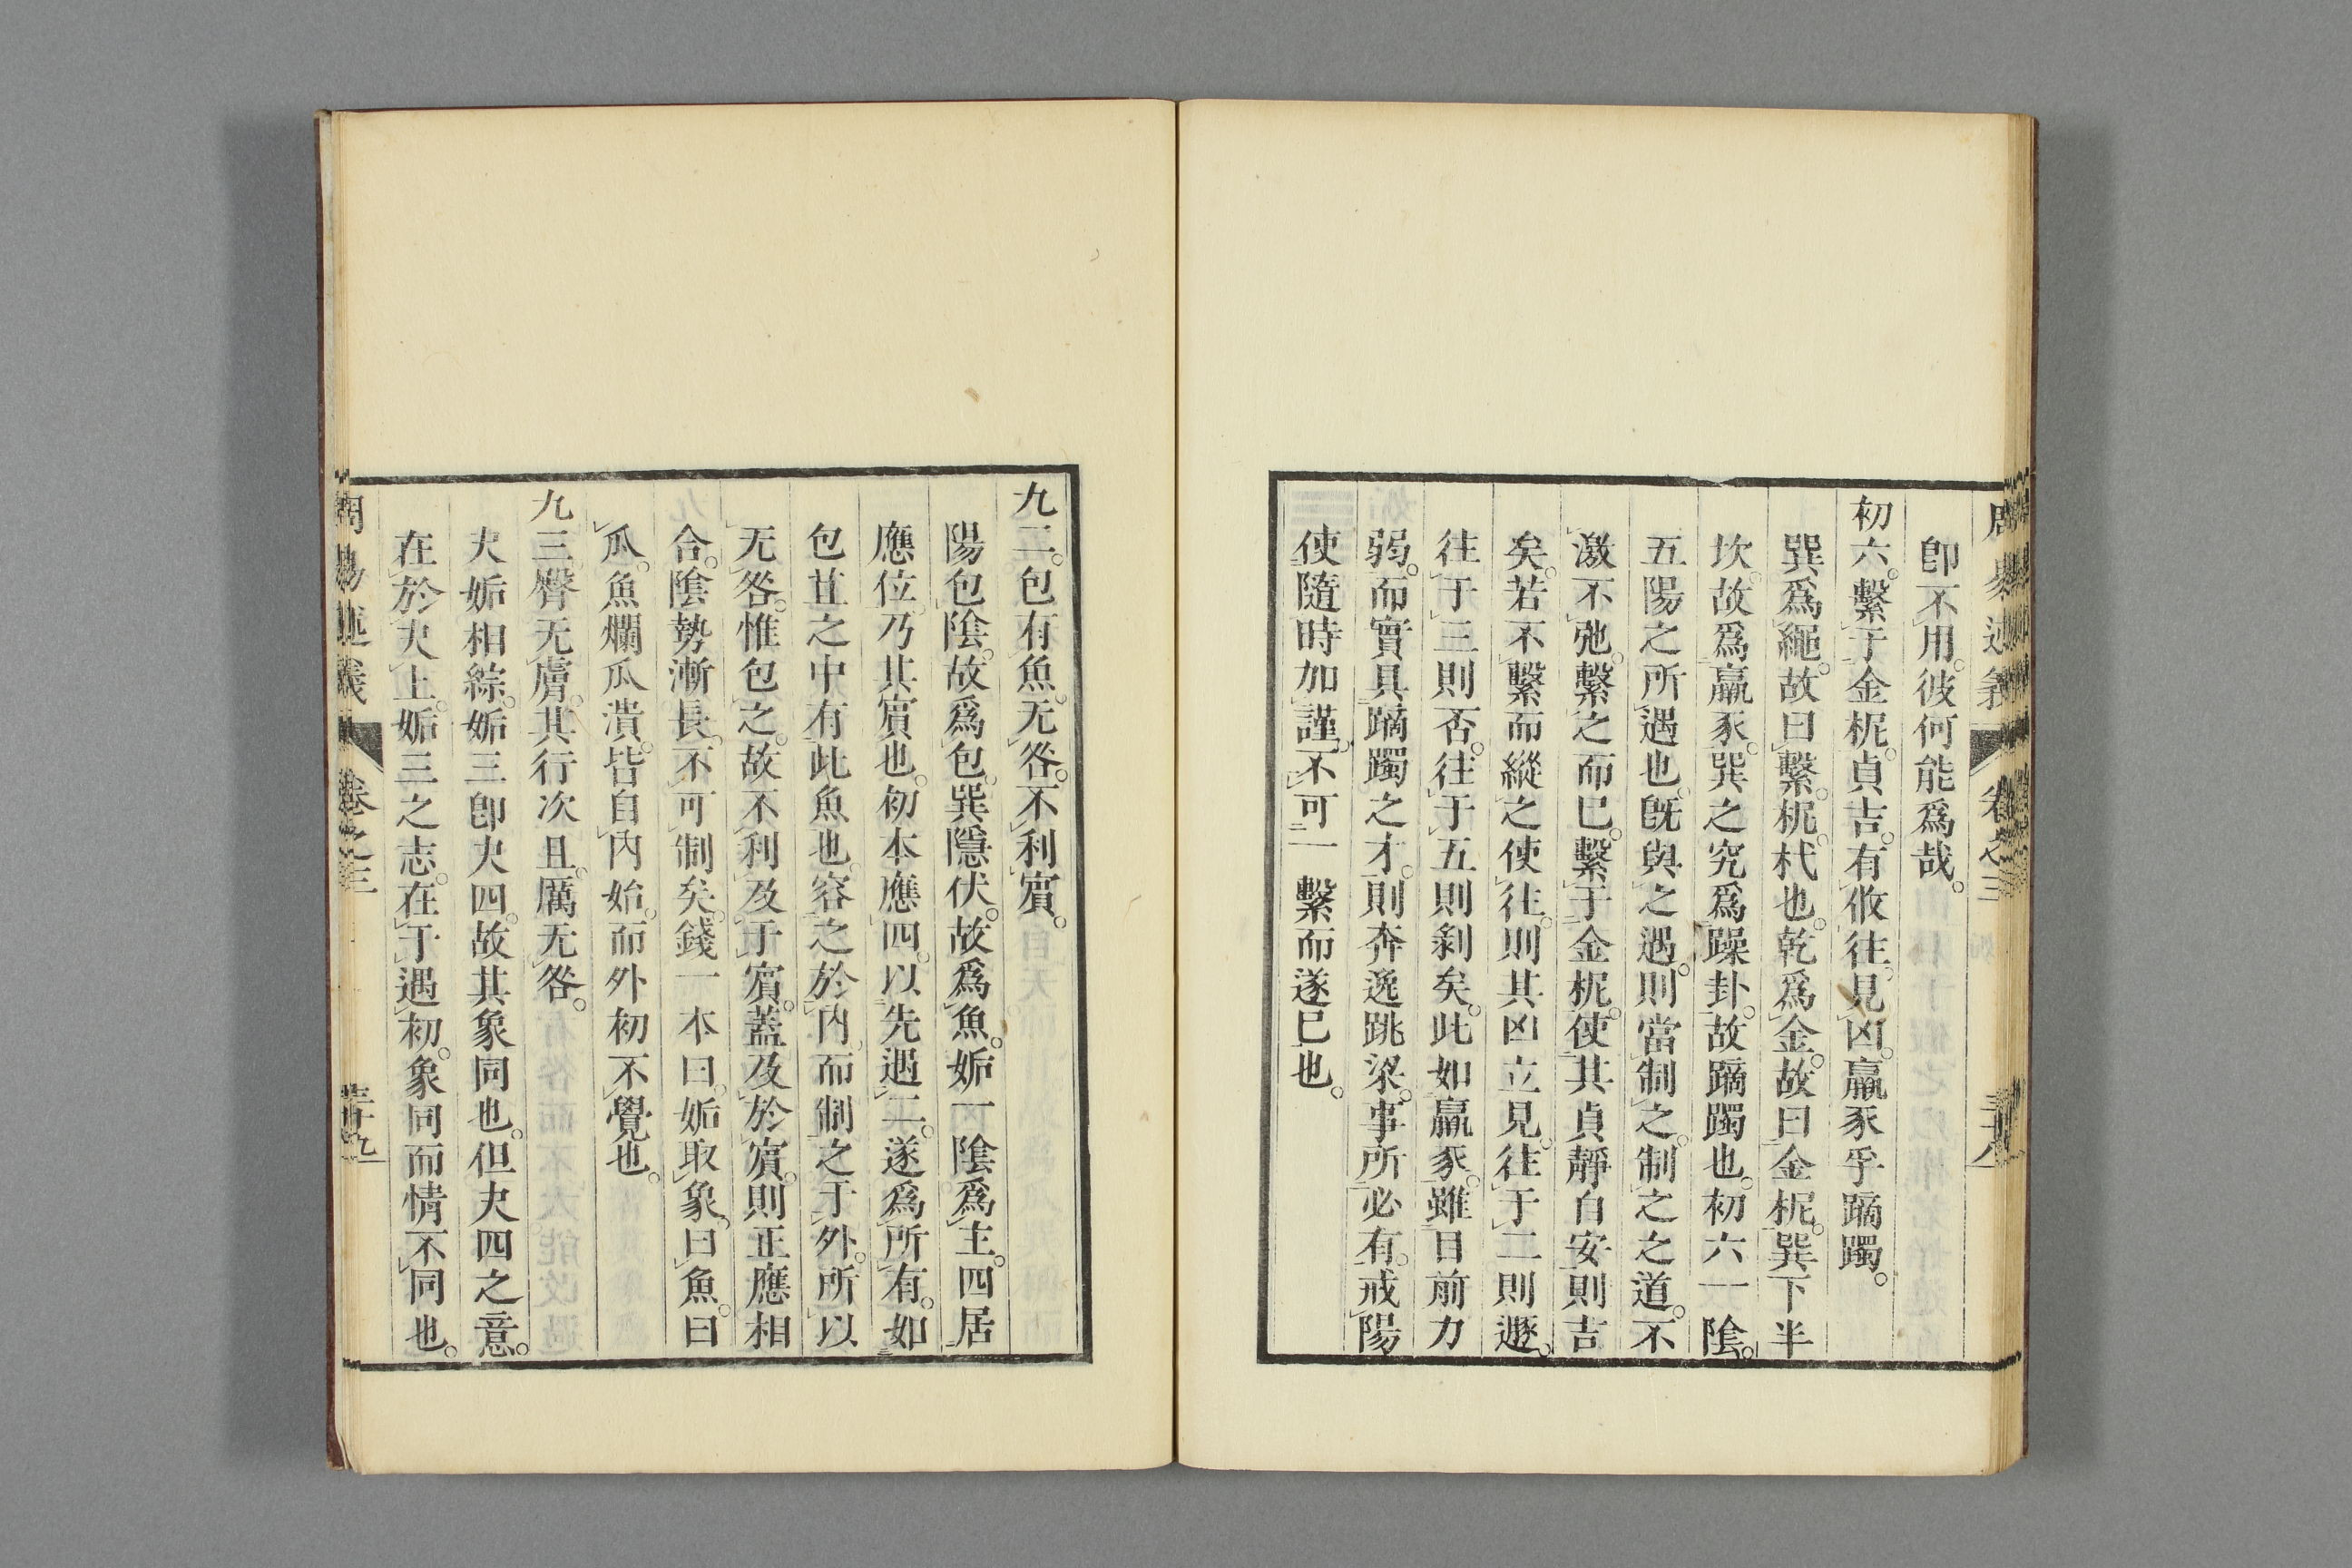 卽不用。彼何能爲哉。
初六。繫于金柅。貞吉。有攸往。見凶。羸豕孚蹢躅。
巽爲繩。故曰繫。柅。杙也。乾爲金。故曰金柅。巽下半
坎。故爲羸豕。巽之究爲躁卦。故蹢躅也。初六一陰。
五陽之所遇也。旣與之遇。則當制之。制之之道。不
激不弛。繫之而已。繫于金柅。使其貞靜自安則吉
矣。若不繫而縱之使往。則其凶立見。往于二則遯。
往于三則否。往于五則剝矣。此如羸豕。雖目前力
弱。而實具蹢躅之才。則奔逸跳梁。事所必有。戒陽
使隨時加謹。不可一繫而遂已也。
周易述義 卷之三 三十八
九二。包有魚。无咎。不利賓。
陽包陰。故爲包。巽隱伏。故爲魚。姤一陰爲主。四居
應位。乃其賓也。初本應四。以先遇二。遂爲所有。如
包苴之中有此魚也。容之於內。而制之于外。所以
无咎。惟包之。故不利及于賓。蓋及於賓。則正應相
合。陰勢漸長。不可制矣。錢一本曰。姤取象曰魚。曰
瓜。魚爛瓜潰。皆自內始。而外初不覺也。
九三臀无膚。其行次且。厲无咎。
夬姤相綜。姤三卽夬四。故其象同也。但夬四之意。
在於夬上。姤三之志。在于遇初。象同而情不同也。
周易述義 卷之三 三十九